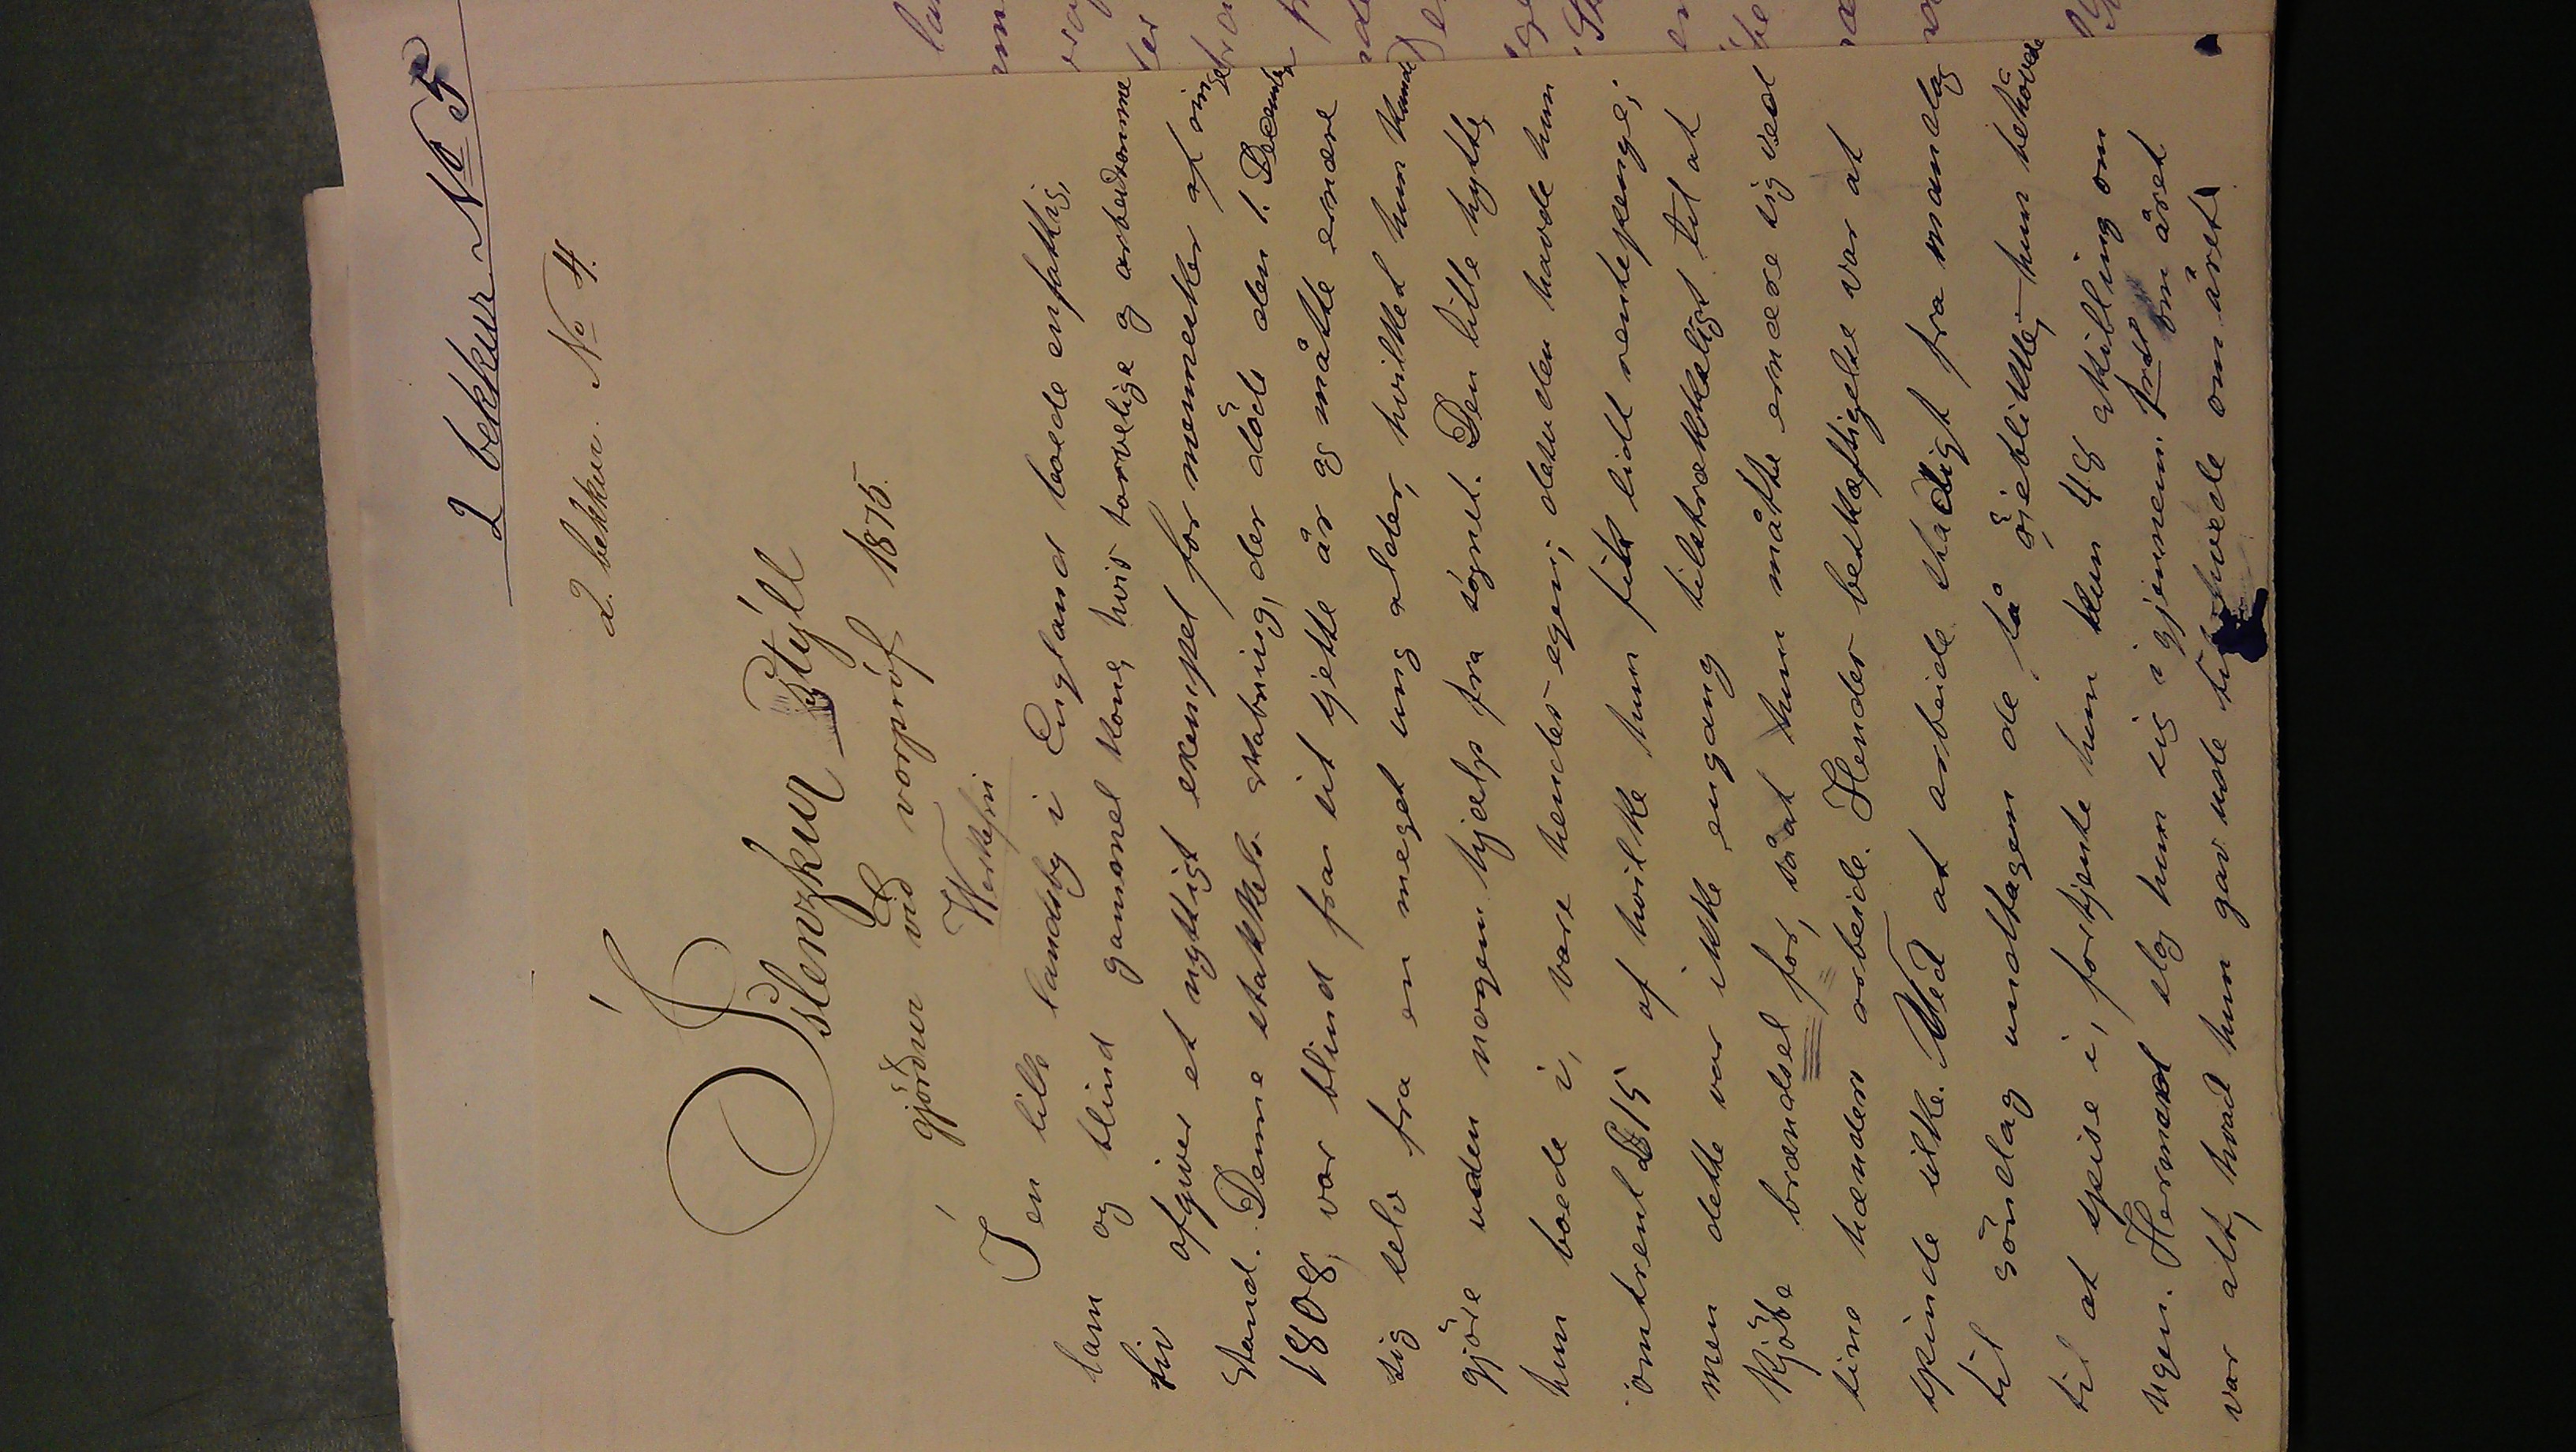 2 bekkur No 5
2. bekkur. No 4.
Íslenzkur Stýll
gjörður við vorpróf 1875.
I en lille landsby i England boede en fattig,
lam og blind gammel kone, hvis tarvelige og arbeidsomme
liv afgiver et nyttigt exempel for mennesker af ringe
stand. Denne stakkels skabning, der döde den 1. December
1808, var blind fra sit sjette år og måtte ernære
sig selv fra en meget ung alder, hvilket hun kunde
gjöre uden nogen hjælp fra sognet. Den lille hytte,
hun boede i, var hendes egen; desuden havde hun
omtrent £15 af hvilke hun fik lidt rentepenge;
men dette var ikke engang tilstrækkeligt til at
kjöbe brændsel for, så at hun måtte ernære sig ved
sine hænders arbeide. Hendes beskæftigelse var at
spinde silke. Ved at arbeide stadigt fra mandag
til söndag undtagen de få öjeblikke, hun behövede
til at spise i, fortjente hun kun 48 skilling om
ugen. Hermed slog hun sig igjennem året
var alt, hvad hun gav ude til hvede om året